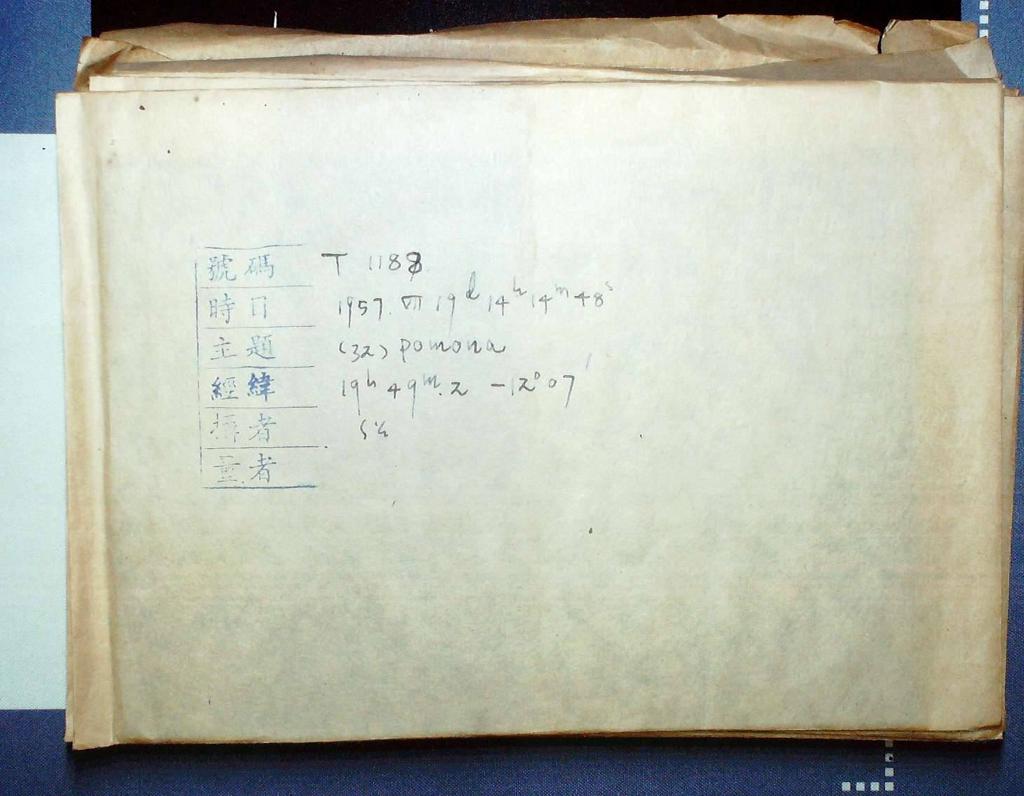 號碼 T 1188
時日 1957. Ⅶ 19ᵈ 14ʰ 14ᵐ 48ˢ
主題 (32) pomona
經緯 19ʰ 49ᵐ.2 -12°07'
攝者
量者